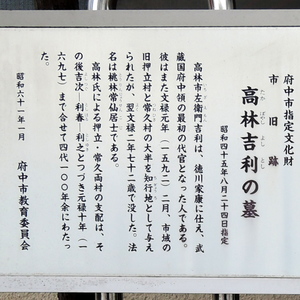 府中市指定文化財
市旧跡
高林吉利の墓
たかばやしよしとし
昭和四十五年八月二十四日指定
高林市左衛門吉利は、徳川家康に仕え、武
蔵国府中領の最初の代官となった人である。
彼はまた文禄元年（一五九二）二月、市域の
旧押立村と常久村の大半を知行地として与え
られたが、翌文禄二年七十二歳で没した。法
名は桃林常仙居士である。
高林氏による押立・常久両村の支配は、そ
の後吉次―利春―利之とつづき元禄十年（一
六九七）まで合せて四代一〇〇年余にわたっ
た。
昭和六十一年一月
府中市教育委員会